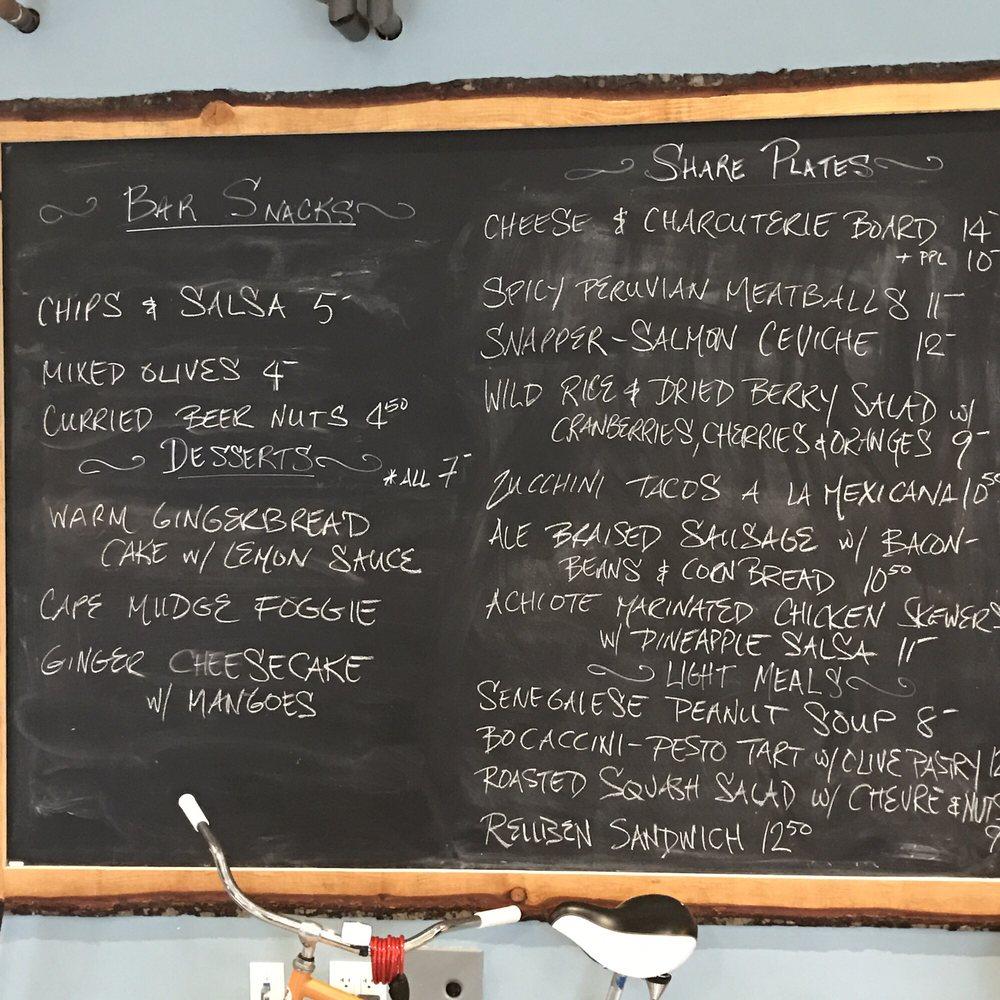 BAR SNACKS
CHIPS & SALSA 5-
MIXED OLIVES 4-
CURRIED BEER NUTS 4 50
DESSERTS
*ALL 7-
WARM GINGERBREAD
CAKE W/ LEMON SAUCE
CAPE MUDGE FOGGIE
GINGER CHEESECAKE
W/ MANGOES
SHARE PLATES
CHEESE & CHARCUTERIE BOARD 14-
+ PPL 10-
SPICY PERUVIAN MEATBALLS 11-
SNAPPER-SALMON CEVICHE 12-
WILD RICE & DRIED BERRY SALAD W/
CRANBERRIES, CHERRIES & ORANGES 9-
ZUCCHINI TACOS A LA MEXICANA 10 50
ALE BRAISED SAUSAGE W/ BACON-
BEANS & CORN BREAD 10 50
ACHIOTE MARINATED CHICKEN SKEWERS
W/ PINEAPPLE SALSA 11-
LIGHT MEALS
SENEGALESE PEANUT SOUP 8-
BOCACCINI-PESTO TART W/ OLIVE PASTRY
ROASTED SQUASH SALAD W/ CHEVRE & NUTS
REUBEN SANDWICH 12 50